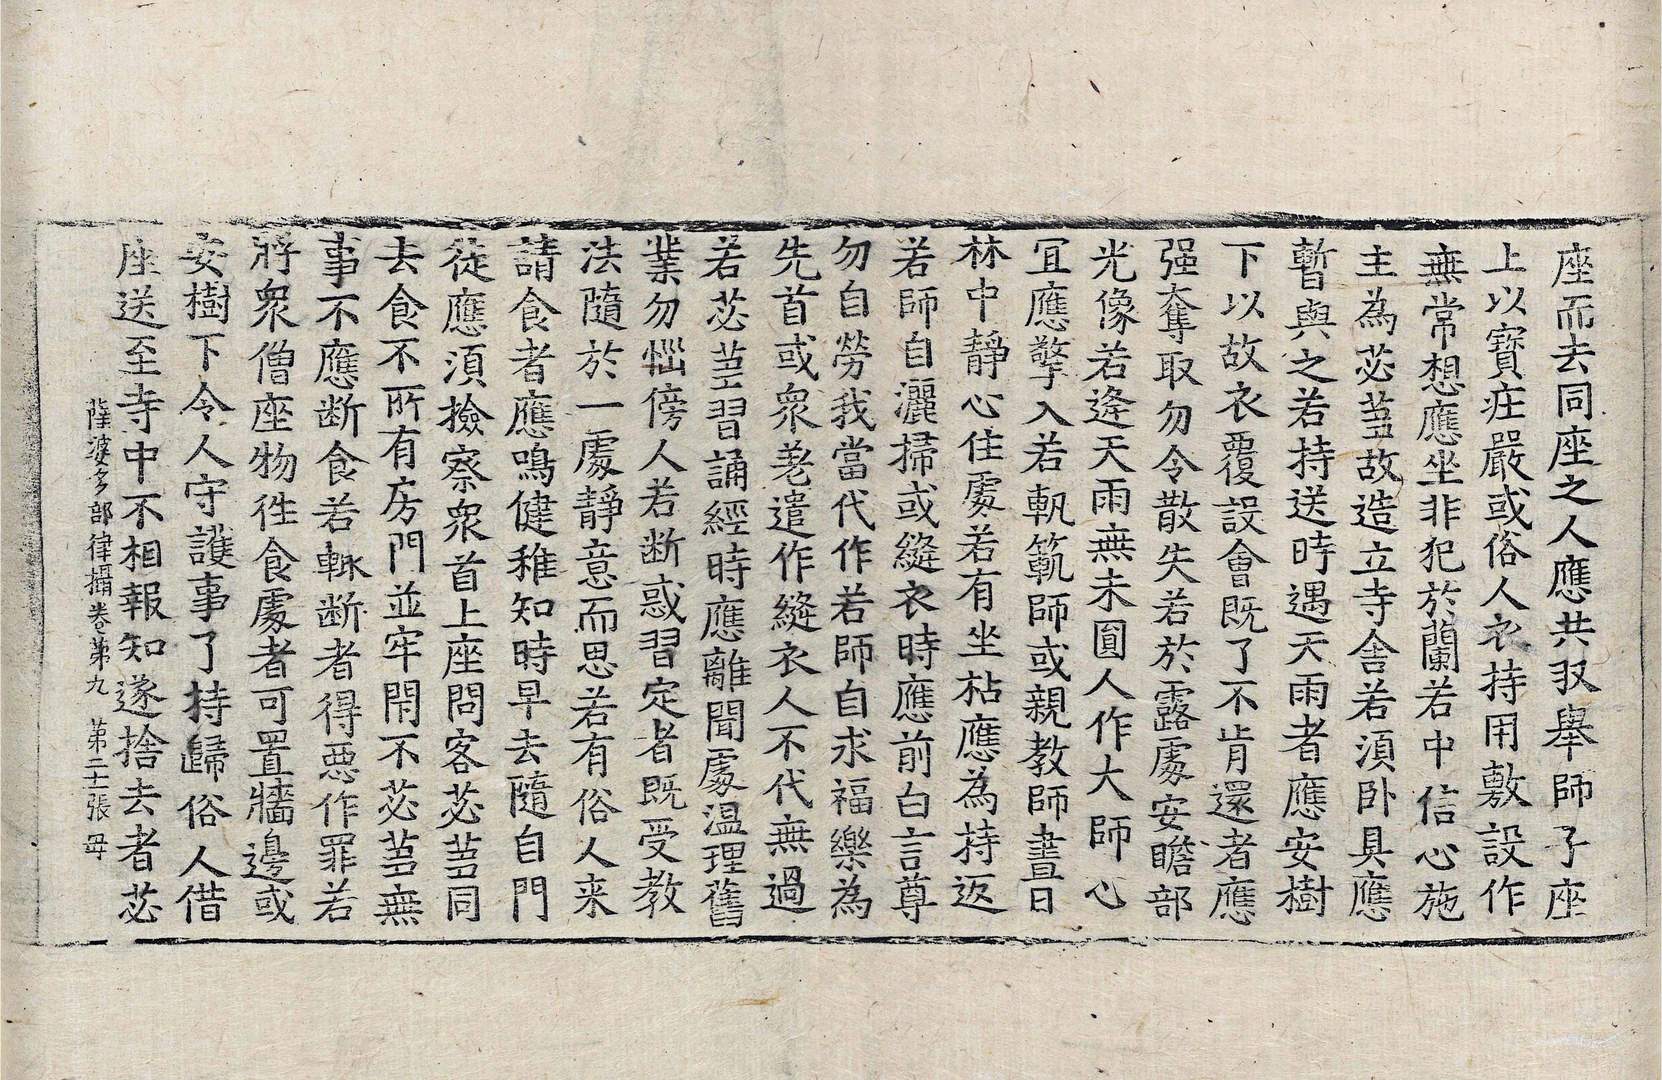 座而去同座之人應共収舉師子座
上以寶庄嚴或俗人衣持用敷設作
無常想應坐非犯於蘭若中信心施
主為苾芻故造立寺舍若須卧具應
暫與之若持送時遇天雨者應安樹
下以故衣覆設會既了不肯還者應
强奪取勿令散失若於露處安瞻部
光像若逢天雨無未圓人作大師心
冝應擎入若軌範師或親教師晝日
林中靜心住處若有坐枯應為持返
若師自灑掃或縫衣時應前白言尊
勿自勞我當代作若師自求福樂為
先首或衆老遣作縫衣人不代無過
若苾芻習誦經時應離聞處温理舊
業勿惱傍人若断惑習定者既受教
法隨於一處靜意而思若有俗人来
請食者應鳴健稚知時早去隨自門
徒應須撿察衆首上座問客苾芻同
去食不所有房門並牢閇不苾芻無
事不應断食若輙断者得惡作罪若
將衆僧座物徃食處者可置牆邊或
安樹下令人守護事了持歸俗人借
座送至寺中不相報知遂捨去者苾
薩婆多部律攝卷第九 第二十張 毋